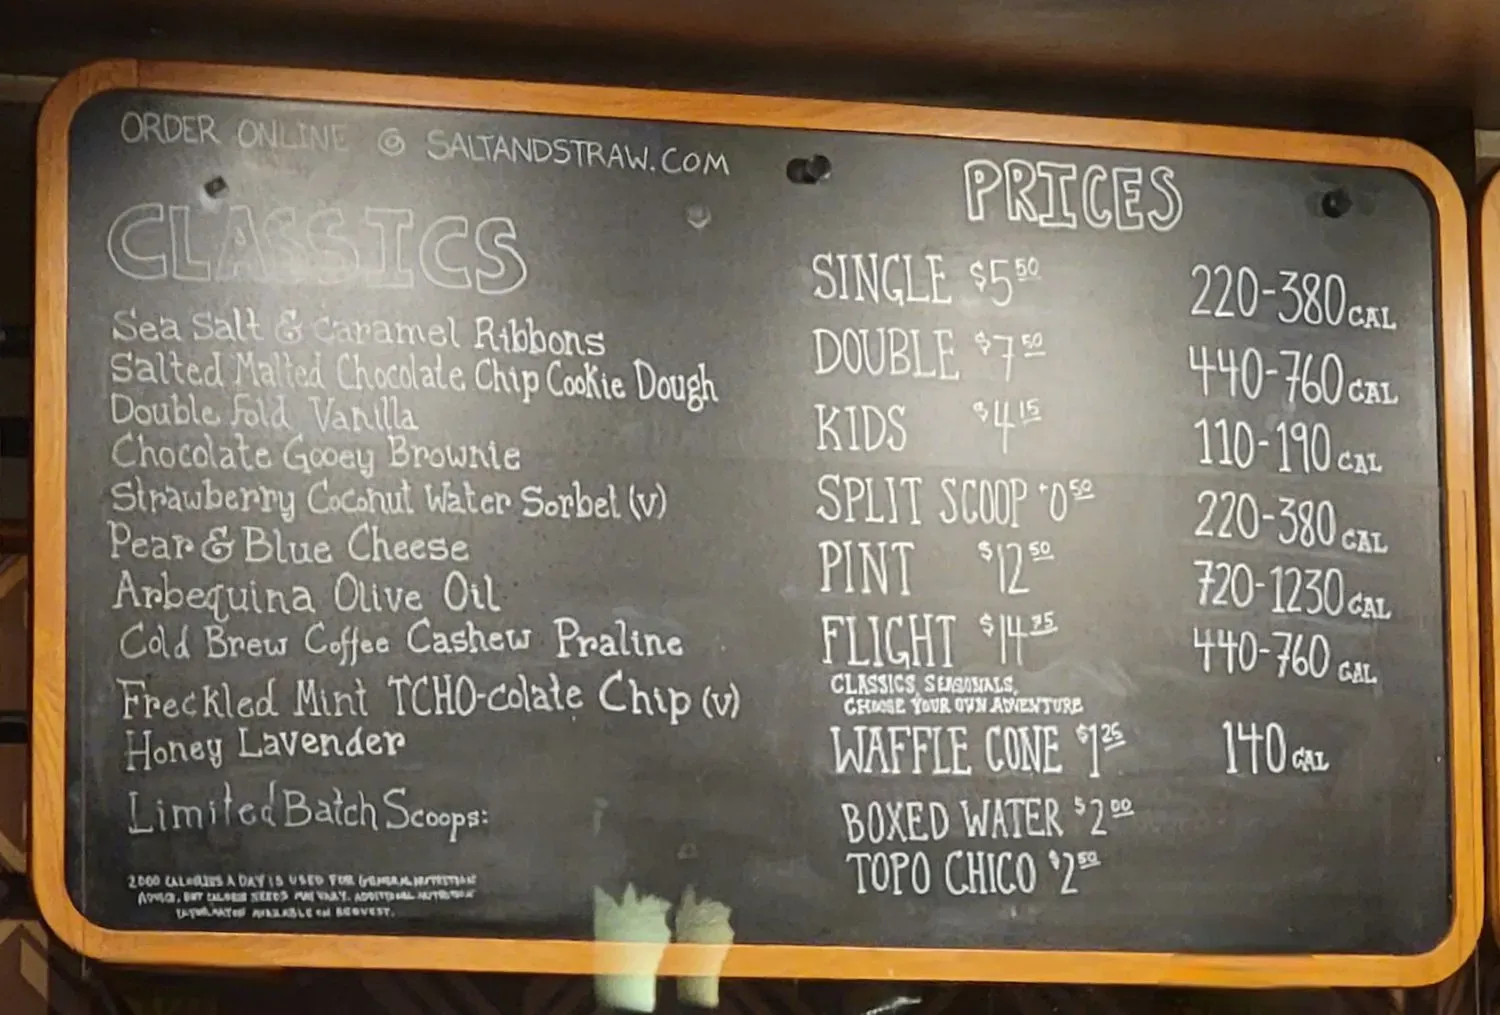 ORDER ONLINE @ SALTANDSTRAW.COM
CLASSICS
Sea Salt & Caramel Ribbons
Salted Malted Chocolate Chip Cookie Dough
Double Fold Vanilla
Chocolate Gooey Brownie
Strawberry Coconut Water Sorbet (v)
Pear & Blue Cheese
Arbequina Olive Oil
Cold Brew Coffee Cashew Praline
Freckled Mint TCHO-colate Chip (v)
Honey Lavender
Limited Batch Scoops:
2000 CALORIES A DAY IS USED FOR GENERAL NUTRITION
ADVICE, BUT CALORIE NEEDS MAY VARY. ADDITIONAL NUTRITION
INFORMATION AVAILABLE ON REQUEST.
PRICES
SINGLE $5.50 220-380 CAL
DOUBLE $7.50 440-760 CAL
KIDS $4.15 110-190 CAL
SPLIT SCOOP +0.50 220-380 CAL
PINT $12.50 720-1230 CAL
FLIGHT $14.75 440-760 CAL
CLASSICS, SEASONALS,
CHOOSE YOUR OWN ADVENTURE
WAFFLE CONE $1.25 140 CAL
BOXED WATER $2.00
TOPO CHICO $2.50